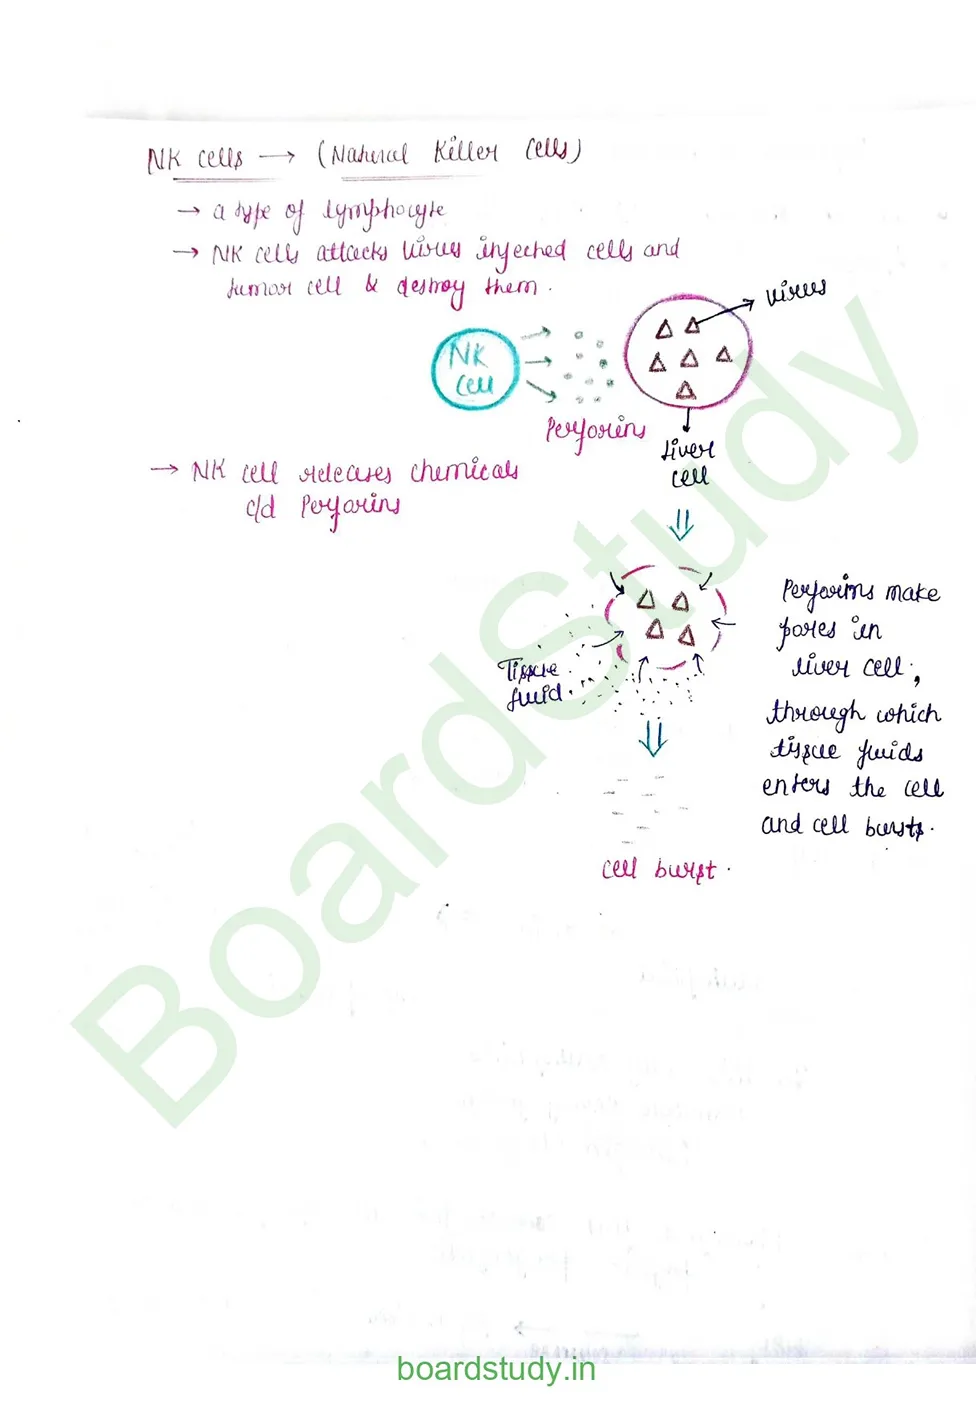 NK cells → (Natural Killer Cells)
→ a type of lymphocyte
→ NK cells attacks virus injected cells and
tumor cell & destroy them.
virus
NK
cell
Perforins
liver
cell
→ NK cell releases chemicals
c/d Perforins
Tissue
fluid
Perforins make
pores in
liver cell,
through which
tissue fluids
enters the cell
and cell bursts.
cell burst.
BoardStudy
boardstudy.in